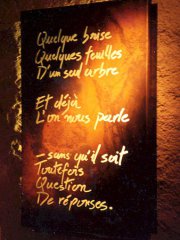 Quelque brise
Quelques feuilles
D'un seul arbre
Et déjà
L'on nous parle
– sans qu'il soit
Toutefois
Question
De réponses.